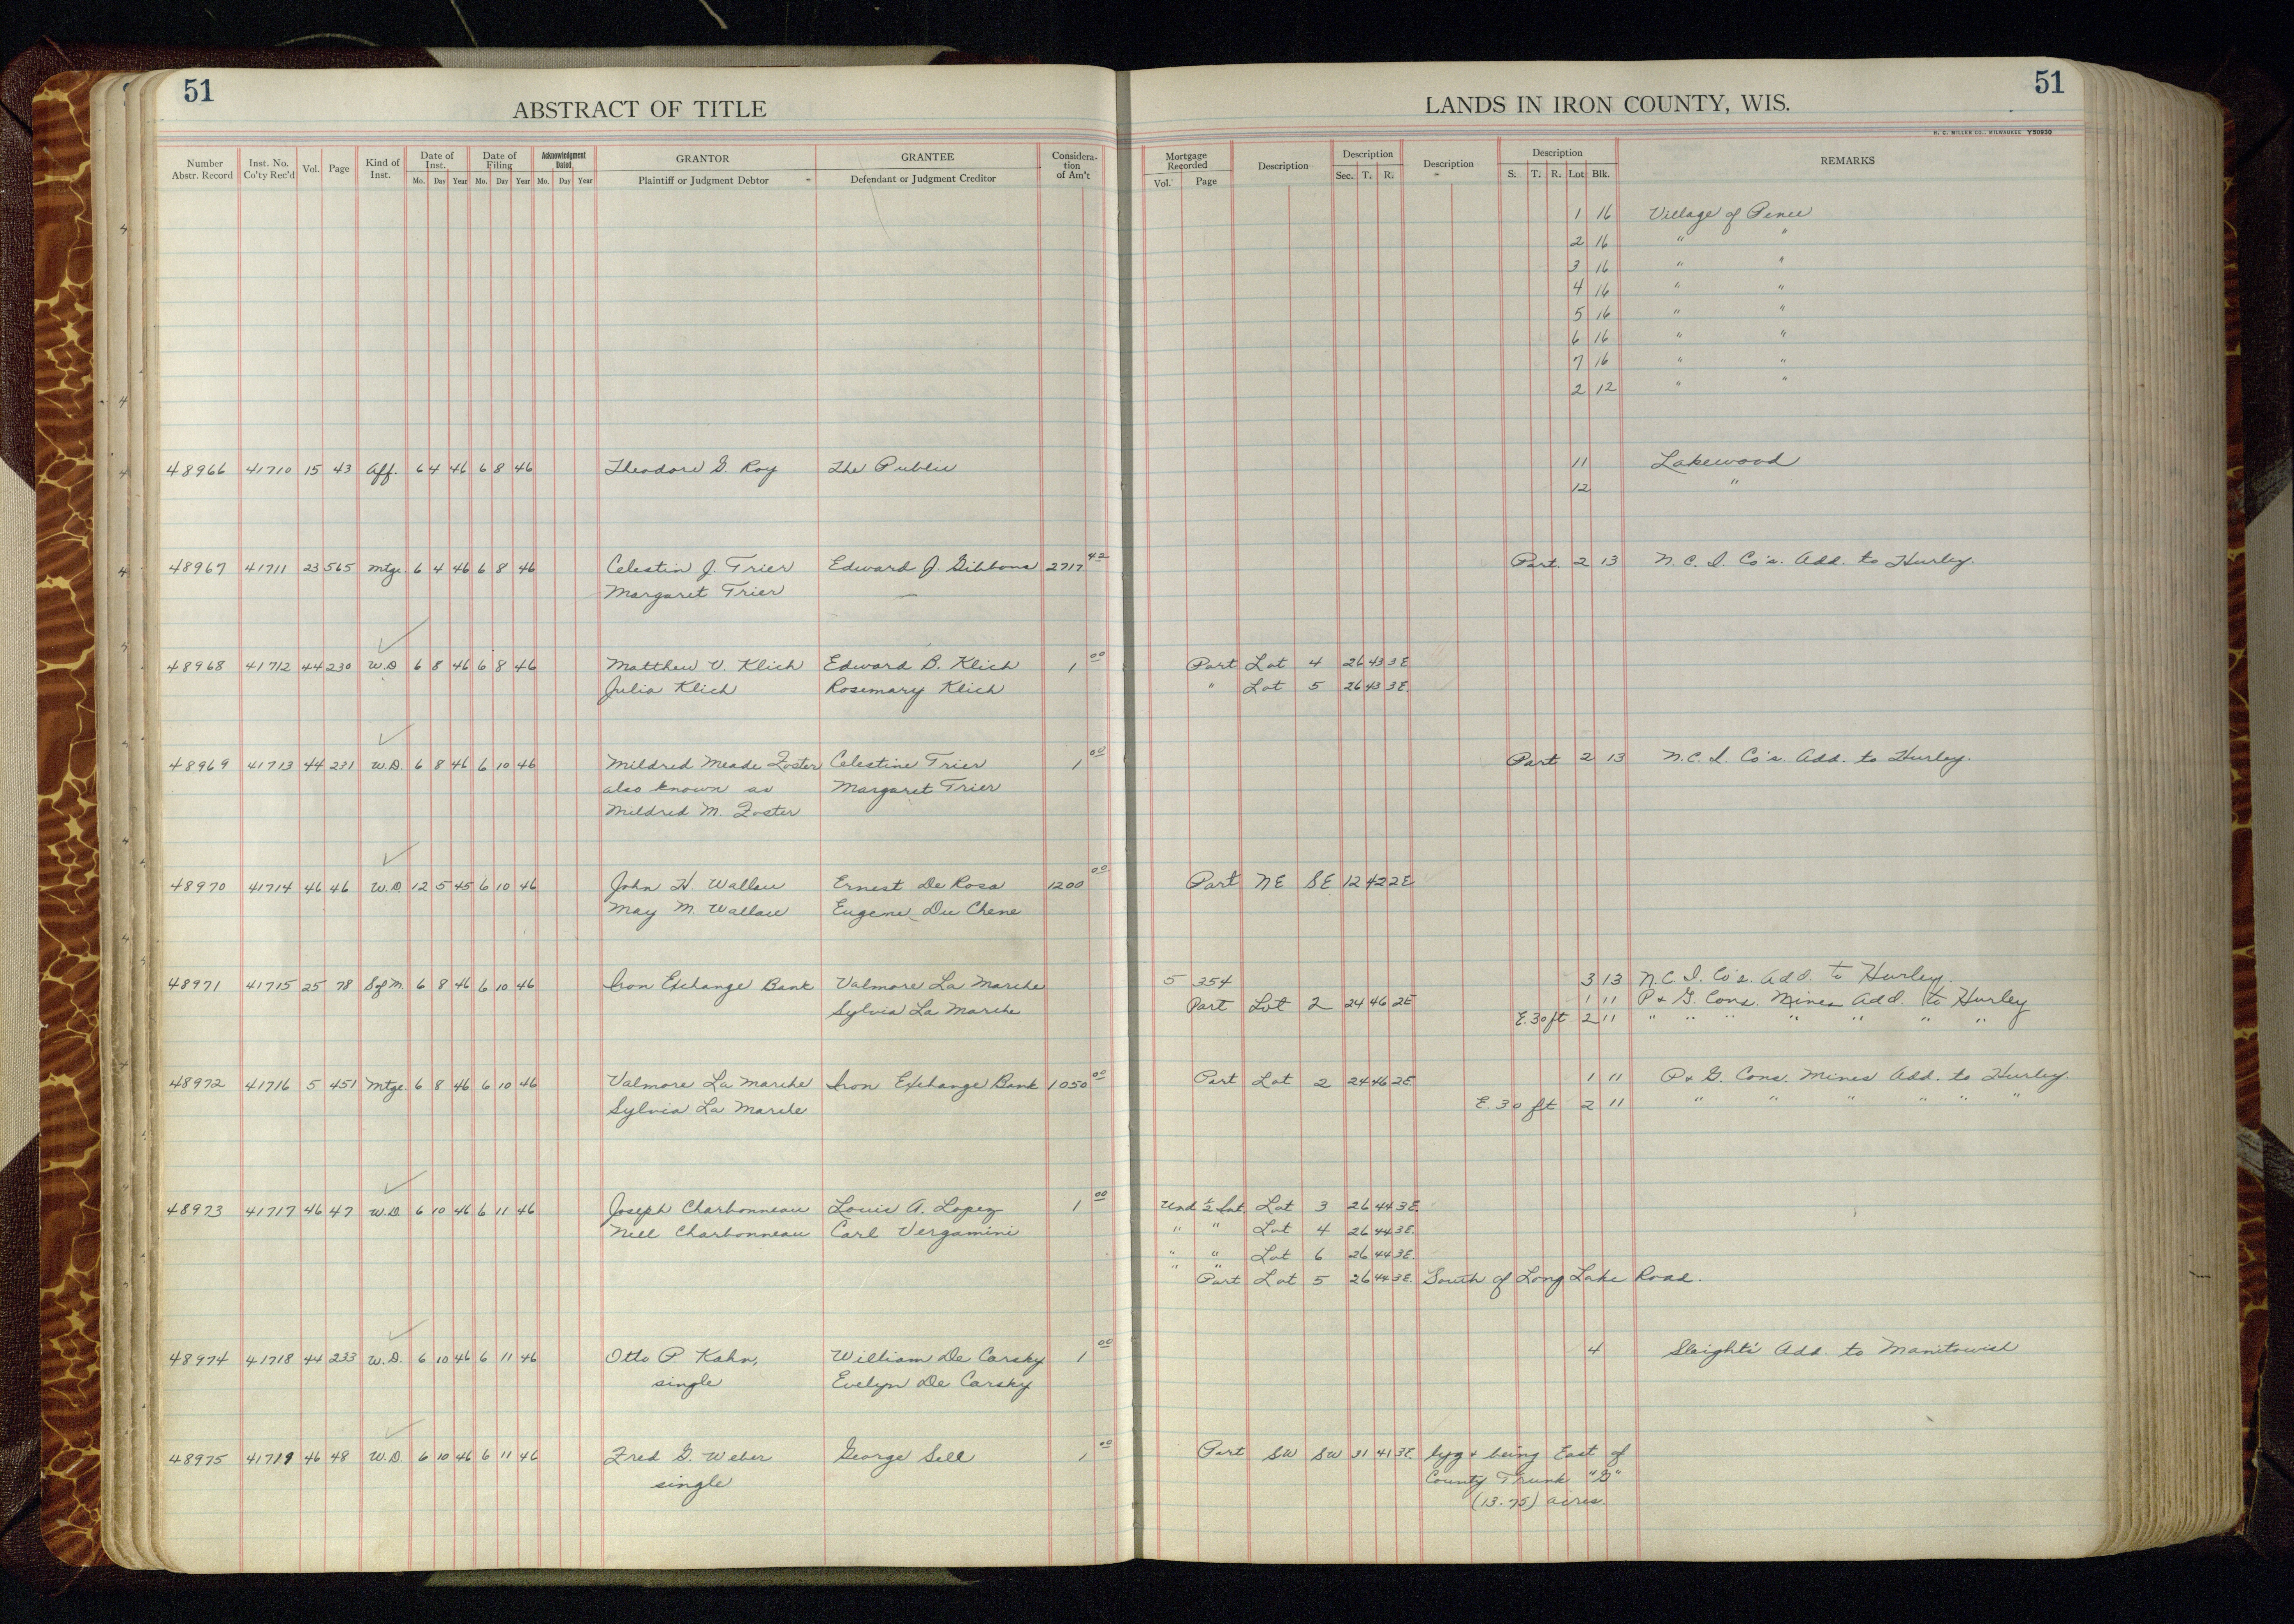 51
ABSTRACT OF TITLE
LANDS IN IRON COUNTY, WIS.
51
H. C. MILLER CO., MILWAUKEE Y50930
Number Abstr. Record | Inst. No. Co'ty Rec'd | Vol. | Page | Kind of Inst. | Date of Inst. Mo. Day Year | Date of Filing Mo. Day Year | Acknowledgment Dated Mo. Day Year | GRANTOR Plaintiff or Judgment Debtor | GRANTEE Defendant or Judgment Creditor | Consideration of Am't | Mortgage Recorded Vol. Page | Description | Description Sec. T. R. | Description | Description S. T. R. Lot Blk. | REMARKS
1 16 Village of Pence
2 16 " "
3 16 " "
4 16 " "
5 16 " "
6 16 " "
7 16 " "
2 12 " "
48966 41710 15 43 Aff. 6 4 46 6 8 46 Theodore G. Roy The Public 11 Lakewood
12 "
48967 41711 23 565 Mtge. 6 4 46 6 8 46 Celestin J. Trier Edward J. Gibbons 2717 42 Part. 2 13 N. C. I. Co's. Add. to Hurley.
Margaret Trier —
48968 41712 44 230 W.D 6 8 46 6 8 46 Matthew V. Klich Edward B. Klich 1 00 Part Lot 4 26 43 3E
Julia Klich Rosemary Klich " Lot 5 26 43 3E.
48969 41713 44 231 W.D. 6 8 46 6 10 46 Mildred Meade Foster Celestine Trier 1 00 Part 2 13 N.C.I. Co's Add. to Hurley.
also known as Margaret Trier
Mildred M. Foster
48970 41714 46 46 W.D. 12 5 45 6 10 46 John H. Wallau Ernest De Rosa 1200 00 Part NE SE 12 42 2E
May M. Wallau Eugene Du Chene
48971 41715 25 78 Sof M. 6 8 46 6 10 46 Iron Exchange Bank Valmore La Marche 5 354 3 13 N.C.I. Co's. Add. to Hurley.
Sylvia La Marche Part Lot 2 24 46 2E 1 11 P & G. Cons. Mines Add. to Hurley
E. 30 ft 2 11 " " " " " " "
48972 41716 5 451 Mtge. 6 8 46 6 10 46 Valmore La Marche Iron Exchange Bank 1050 00 Part Lot 2 24 46 2E. 1 11 P & G. Cons. Mines Add. to Hurley.
Sylvia La Marche E. 30 ft 2 11 " " " " " "
48973 41717 46 47 W.D. 6 10 46 6 11 46 Joseph Charbonneau Louis A. Lopez 1 00 Und ½ Int. Lot 3 26 44 3E.
Nell Charbonneau Carl Vergamini " " Lot 4 26 44 3E.
" " Lot 6 26 44 3E.
" " Part Lot 5 26 44 3E. South of Long Lake Road.
48974 41718 44 233 W.D. 6 10 46 6 11 46 Otto P. Kahn, William De Carsky 1 00 4 Sleight's Add. to Manitowish
single Evelyn De Carsky
48975 41719 46 48 W.D. 6 10 46 6 11 46 Fred G. Weber George Sell 1 00 Part SW SW 31 41 3E. lyg & being East of
single County Trunk "G"
(13.75) acres.